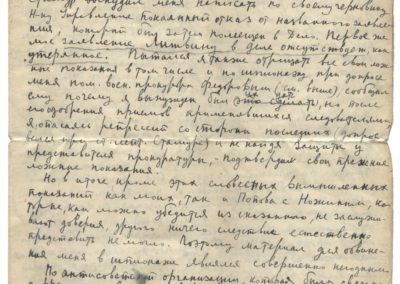 вынудил меня написать по своему черновику
Н-ку Управления покаянный отказ от названного заявле-
ния который он затем поместил в Дело. Первое же
мое заявление Литвину в деле отсутствует, как
утерянное. Пытался я также отрицать все свои лож-
ные показания в том числе и по шпионажу при допросе
меня пом. воен. прокурора Федоровым (см. выше), сообщил
ему почему я вынужден был это сделать, но после
его одобрения приемов применявшихся следователями
опасаясь репрессий со стороны последних (допрос
и не найдя защиты у
представителя прокуратуры, - подтвердил свои прежние
ложные показания.
Но в итоге кроме этих словесных вымышленных
показаний как моих, так и Попова с Ножиным, ко-
торые, как можно убедится из сказанного, не заслужи-
вают доверия, другого ничего следствие естественно
представить не могло. Поэтому материал для обвине-
ния меня в шпионаже явился совершенно негодным.
По антисоветской организации, которая была